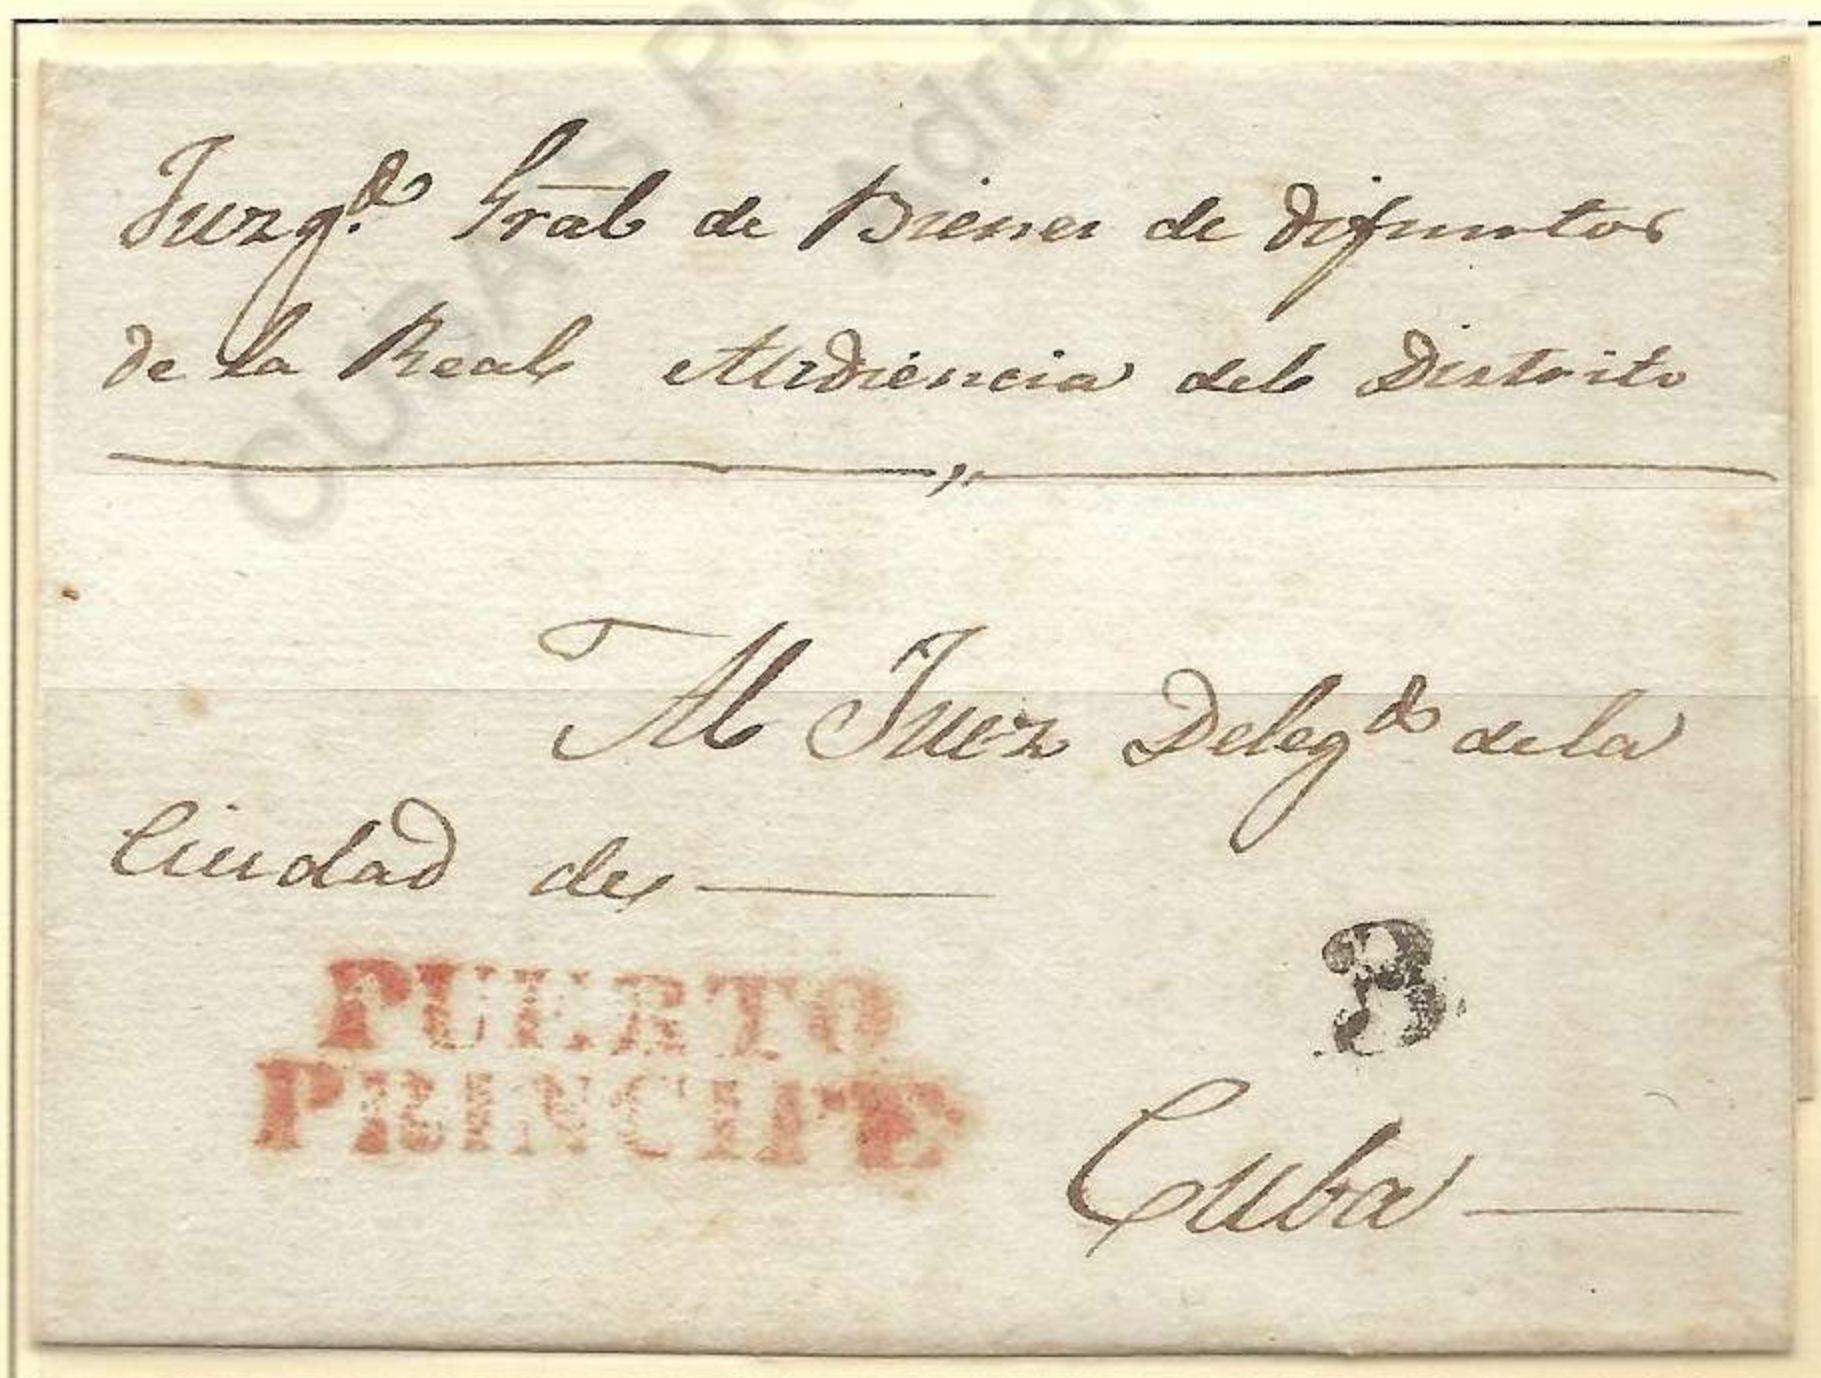 Juzg.do Gral de Bienes de difuntos
de la Real Audiencia del Distrito
Al Juez Deleg.do de la
Ciudad de
PUERTO
PRINCIPE
3
Cuba